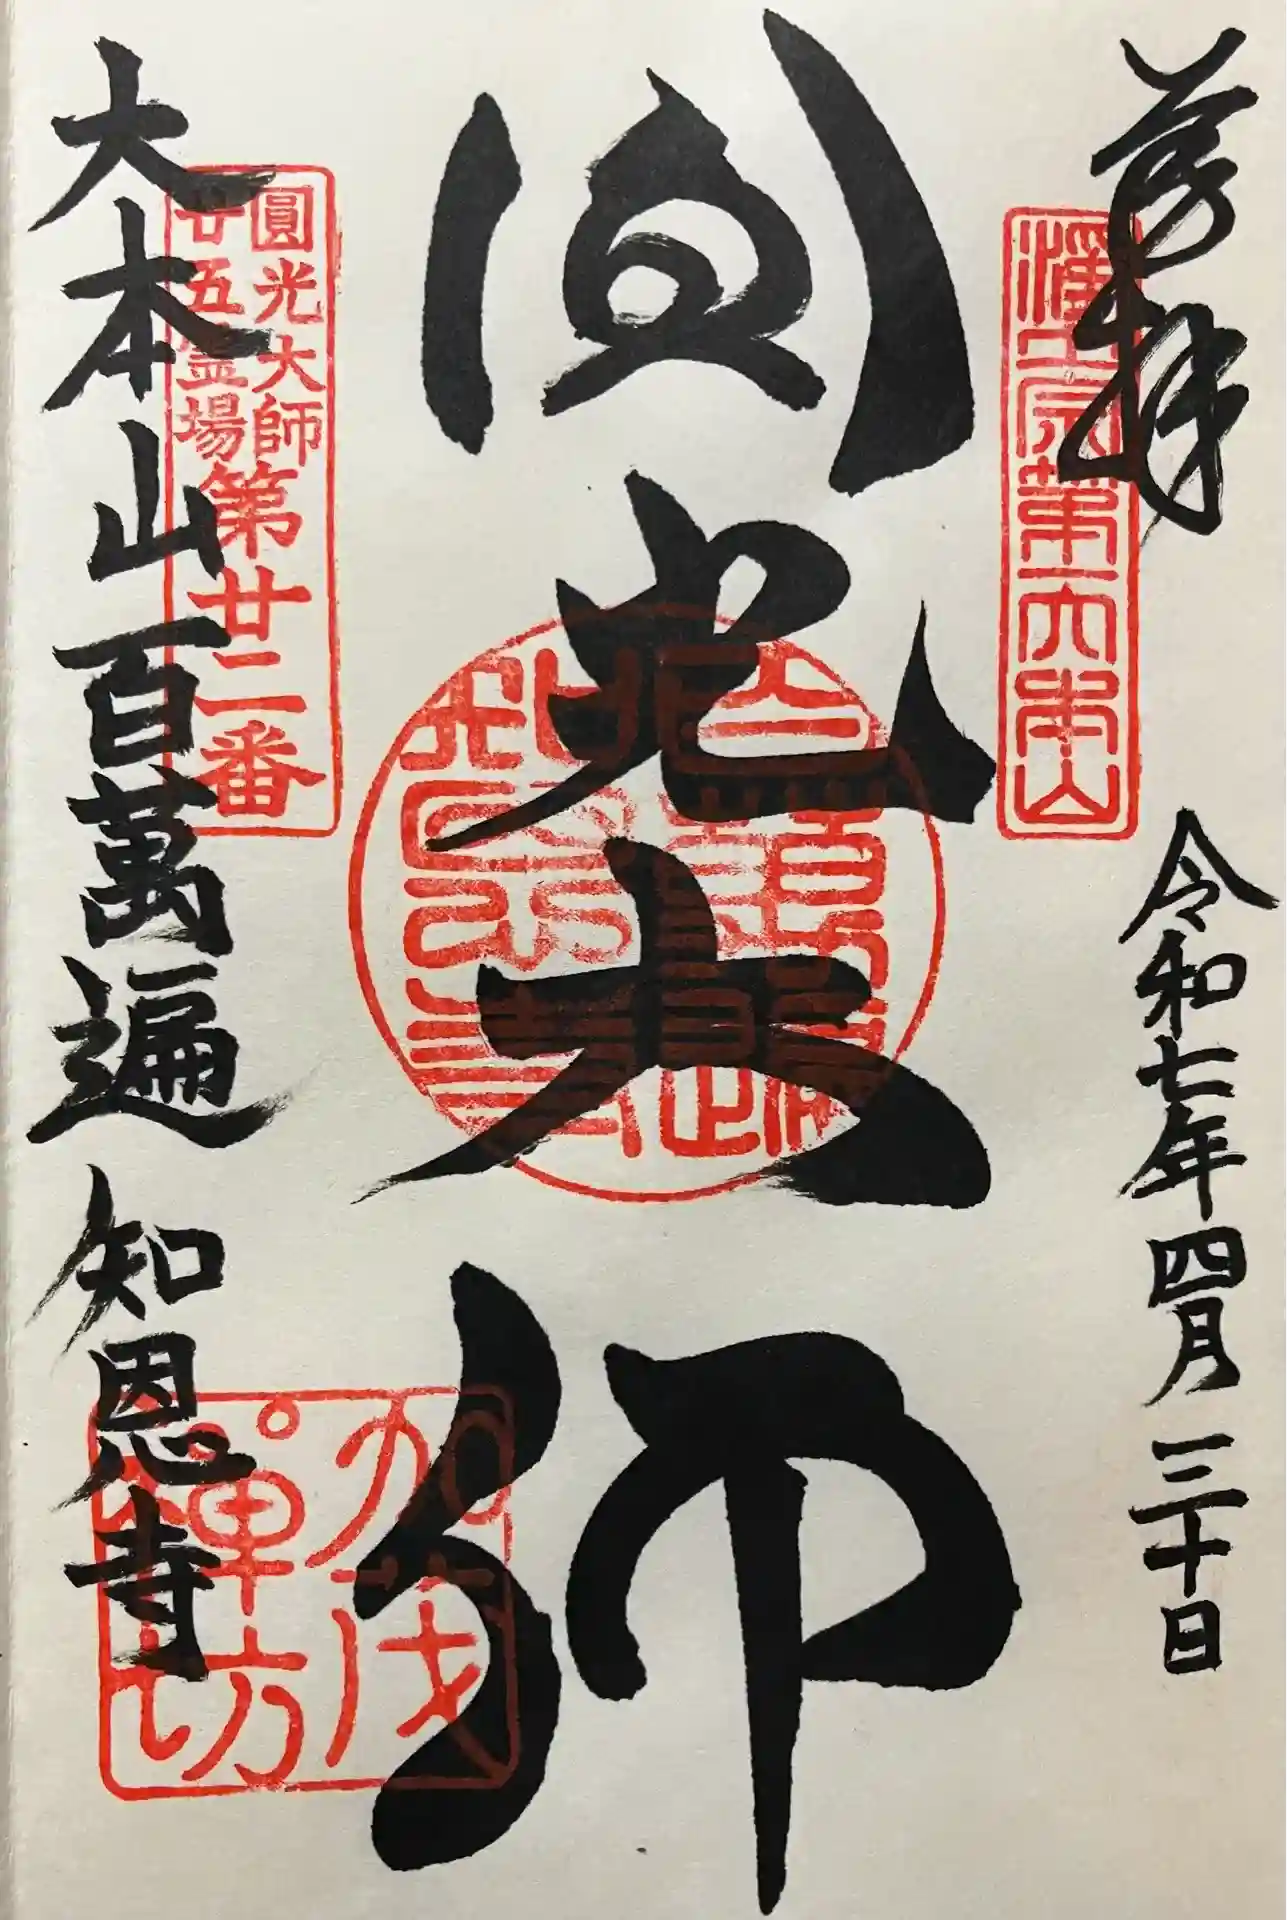 奉拝
令和七年四月三十日
浄土宗第一大本山
圓光大師
大本山百萬遍知恩寺
圓光大師
廿五霊場
第廿二番
加茂
禅坊